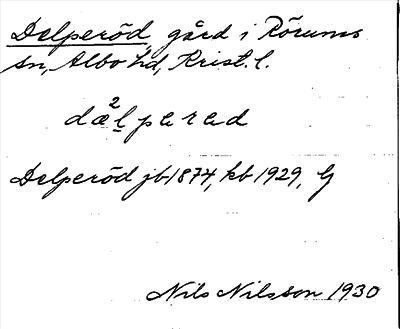 Delperöd, gård i Rörums
sn, Albo hd, Krist. l.
dæ²l pɐ rɐd
Delperöd jb 1874, kb 1929, G
Nils Nilsson 1930